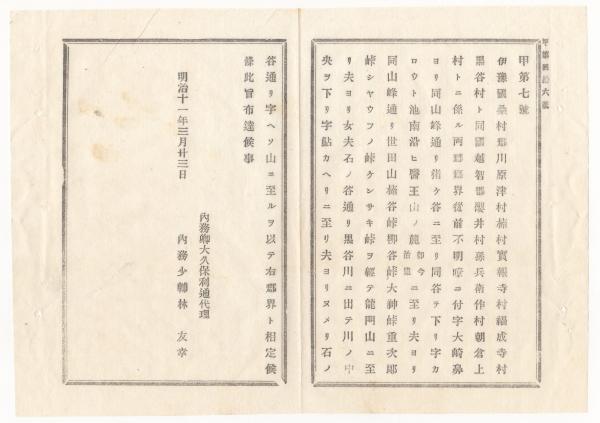 甲第七號
伊豫國桑村郡川原津村楠村實報寺村福成寺村
黒谷村ト同國越智郡櫻井村孫兵衛作村朝倉上
村トニ係ル兩郡郡界從前不明瞭ニ付字大崎鼻
ヨリ同山峰通リ猪ケ谷ニ至リ同谷ヲ下リ字カ
ロウト池南沿ヒ醫王山ノ龍ニ至リ夫ヨリ
同山峰通リ世田山楠谷峠柳谷峠大神峠重次郎
峠シヤウフノ峠ケンサキ峠ヲ經テ龍門山ニ至
リ夫ヨリ女夫石ノ谷通リ黒谷川ニ出テ川ノ中
央ヲ下リ字鮎カヘリニ至リ夫ヨリヌメリ石ノ
谷通リ字ヘソ山ニ至ルヲ以テ右郡界ト相定候
條此旨布達候事
明治十一年三月廿三日
內務卿大久保利通代理
內務少輔林友幸